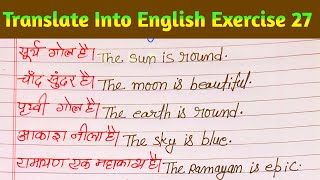 Translate Into English Exercise 27
सूर्य गोल है। The sun is round.
चाँद सुंदर है। The moon is beautiful.
पृथ्वी गोल है। The earth is round.
आकाश नीला है। The sky is blue.
रामायण एक महाकाव्य है। The Ramayan is epic.